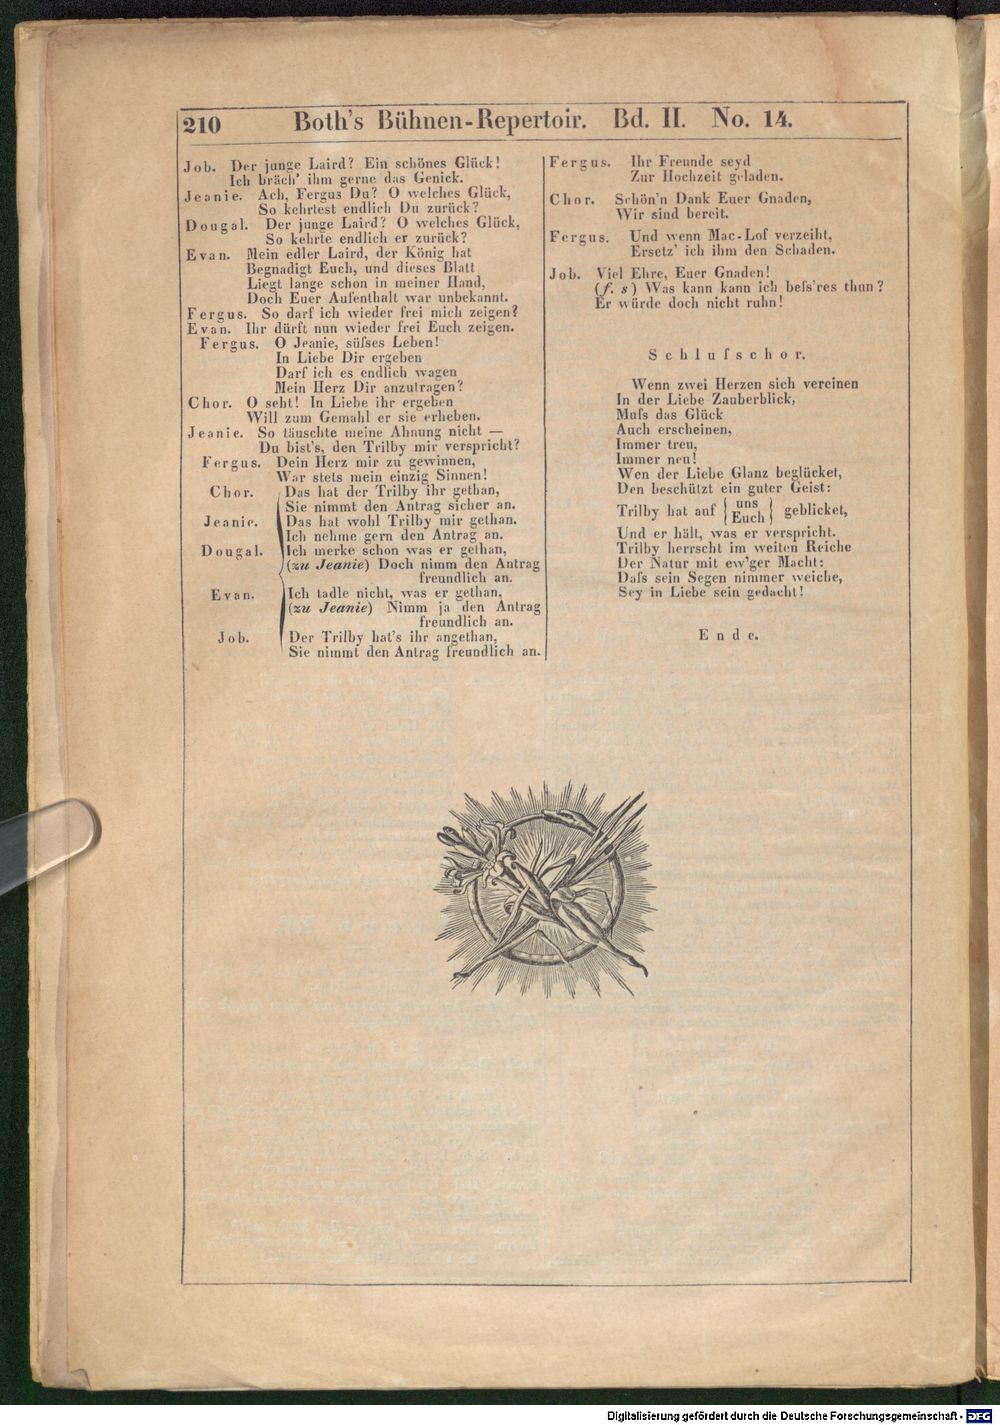 210 Both's Bühnen-Repertoir. Bd. II. No. 14.
Job. Der junge Laird? Ein schönes Glück!
Ich bräch' ihm gerne das Genick.
Jeanie. Ach, Fergus Du? O welches Glück,
So kehrtest endlich Du zurück?
Dougal. Der junge Laird? O welches Glück,
So kehrte endlich er zurück?
Evan. Mein edler Laird, der König hat
Begnadigt Euch, und dieses Blatt
Liegt lange schon in meiner Hand,
Doch Euer Aufenthalt war unbekannt.
Fergus. So darf ich wieder frei mich zeigen?
Evan. Ihr dürft nun wieder frei Euch zeigen.
Fergus. O Jeanie, süſses Leben!
In Liebe Dir ergeben
Darf ich es endlich wagen
Mein Herz Dir anzutragen?
Chor. O seht! In Liebe ihr ergeben
Will zum Gemahl er sie erheben.
Jeanie. So täuschte meine Ahnung nicht —
Du bist's, den Trilby mir verspricht?
Fergus. Dein Herz mir zu gewinnen,
War stets mein einzig Sinnen!
Chor. Das hat der Trilby ihr gethan,
Sie nimmt den Antrag sicher an.
Jeanie. Das hat wohl Trilby mir gethan.
Ich nehme gern den Antrag an.
Dougal. Ich merke schon was er gethan,
(zu Jeanie) Doch nimm den Antrag
freundlich an.
Evan. Ich tadle nicht, was er gethan,
(zu Jeanie) Nimm ja den Antrag
freundlich an.
Job. Der Trilby hat's ihr angethan,
Sie nimmt den Antrag freundlich an.
Fergus. Ihr Freunde seyd
Zur Hochzeit geladen.
Chor. Schön'n Dank Euer Gnaden,
Wir sind bereit.
Fergus. Und wenn Mac-Lof verzeiht,
Ersetz' ich ihm den Schaden.
Job. Viel Ehre, Euer Gnaden!
(f. s) Was kann kann ich beſs'res thun?
Er würde doch nicht ruhn!
Schluſschor.
Wenn zwei Herzen sich vereinen
In der Liebe Zauberblick,
Muſs das Glück
Auch erscheinen,
Immer treu,
Immer neu!
Wen der Liebe Glanz beglücket,
Den beschützt ein guter Geist:
Trilby hat auf { uns Euch } geblicket,
Und er hält, was er verspricht.
Trilby herrscht im weiten Reiche
Der Natur mit ew'ger Macht:
Daſs sein Segen nimmer weiche,
Sey in Liebe sein gedacht!
Ende.
Digitalisierung gefördert durch die Deutsche Forschungsgemeinschaft - DFG